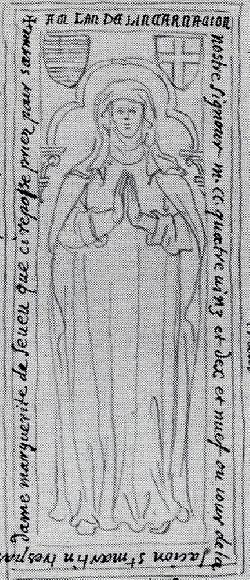 EN LAN DE LINCARNACION
nostre Signour m. cc. quatre vinz et dex et nuef ou iour de la
lacion st martin trespas
dame marguerite de Seueu que ci repose priez pour sarme